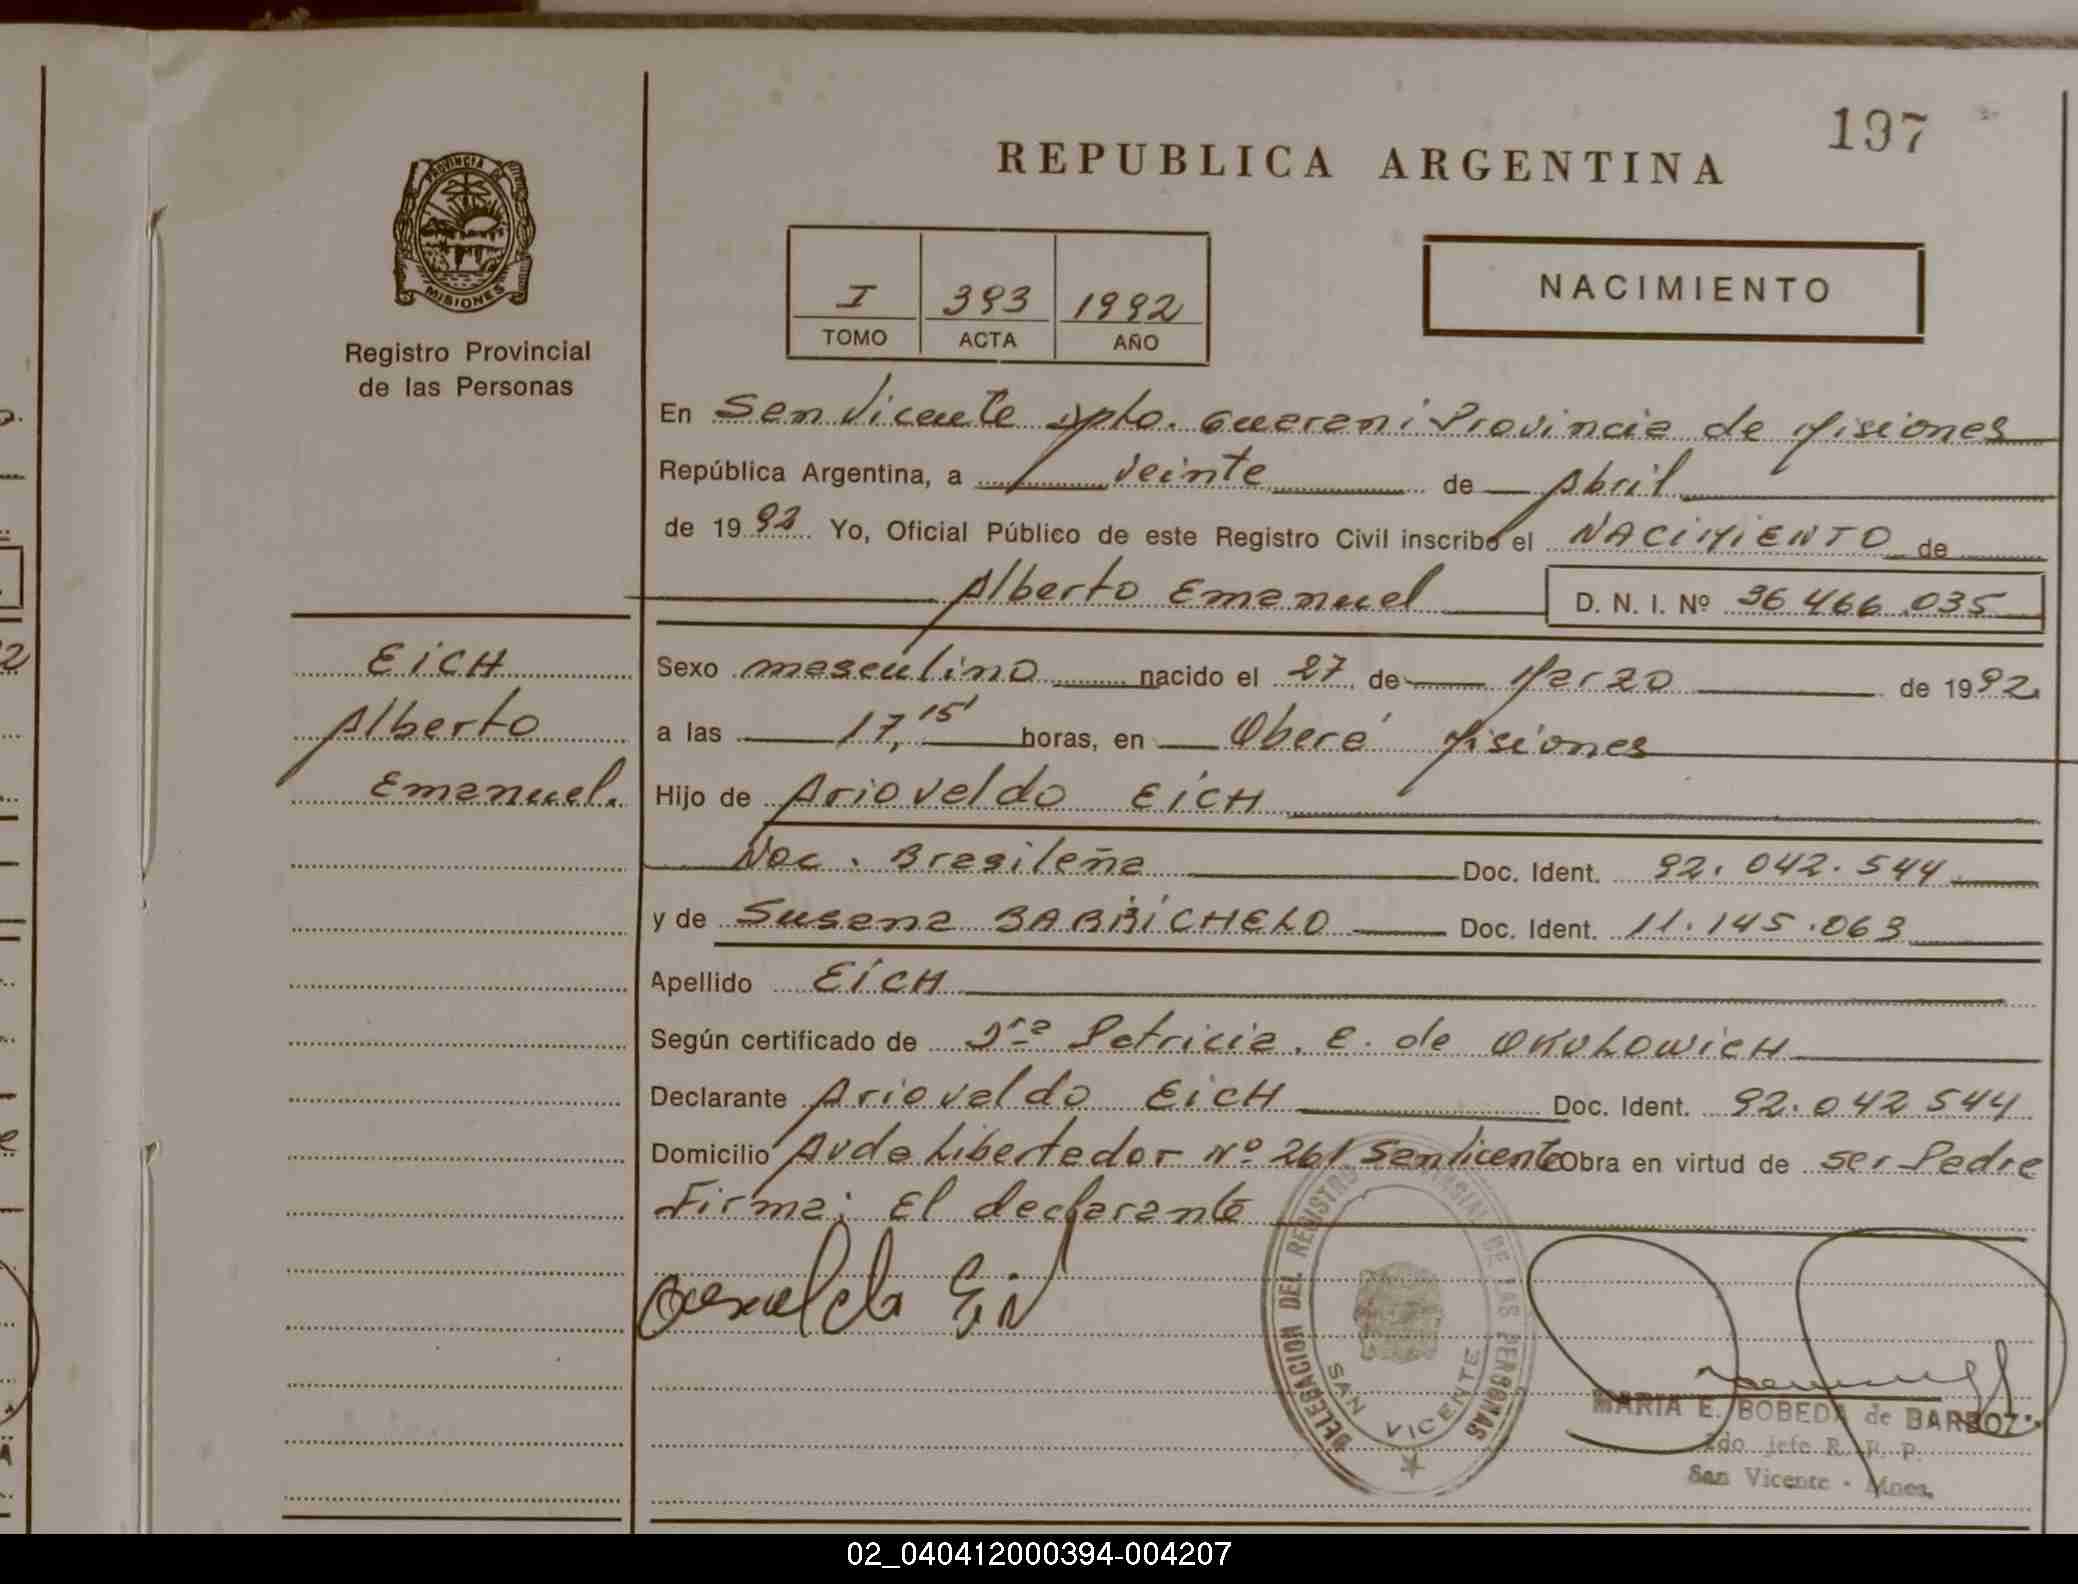 197
REPUBLICA ARGENTINA
PROVINCIA DE
MISIONES
Registro Provincial
de las Personas
I 393 1992
TOMO ACTA AÑO
NACIMIENTO
En San Vicente Dpto. Guaraní Provincia de Misiones
República Argentina, a veinte de Abril
de 1992 Yo, Oficial Público de este Registro Civil inscribo el NACIMIENTO de
Alberto Emanuel D. N. I. Nº 36.466.035
EICH
Alberto
Emanuel.
Sexo masculino nacido el 27 de Marzo de 1992
a las 17,15' horas, en Oberá Misiones
Hijo de Arioveldo EICH
Nac. Brasileña Doc. Ident. 92.042.544
y de Susana BARRICHELO Doc. Ident. 11.145.063
Apellido EICH
Según certificado de Dra Patricia. E. de OKULOWICH
Declarante Arioveldo EICH Doc. Ident. 92.042.544
Domicilio Avda Libertador Nº 261 San Vicente Obra en virtud de ser Padre
Firma: El declarante
DELEGACION DEL REGISTRO PROVINCIAL DE LAS PERSONAS
SAN VICENTE
MARIA E. BOBEDA de BARBOZA
2do jefe R. P. P.
San Vicente - Mnes.
02_040412000394-004207